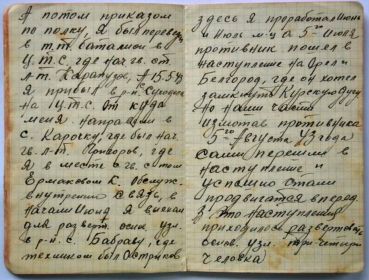 А потом приказом
по полку, я был переведен
в т.т. баталион в
У.Т.С. где нач. гв. ст.
л-т. 15.5.43
я прибыл в р-н
на У.Т.С. от куда
меня направили в
с. Карочку, где был нач.
гв. л-т. Приворов, где
я в месте с гв. с-том
Ермаковым К. обслуж.
внутренню связь, в
начали Июня я выехал
для разверт. осик узл.
в р-н с. где
техником был Остриков
здесь я проработал Июнь
и Июль м-ца 5-го Июля
противник пошел в
наступление на Орел и
Белгород, где он хотел
замкнуть Курскую дугу
но наши части
измотав противника
5-го Августа 43 года
сами перешли в
наступление и
успешно стали
продвигатся в перед
это наступления
приходилось развертовать
узл. три-четыри
человека